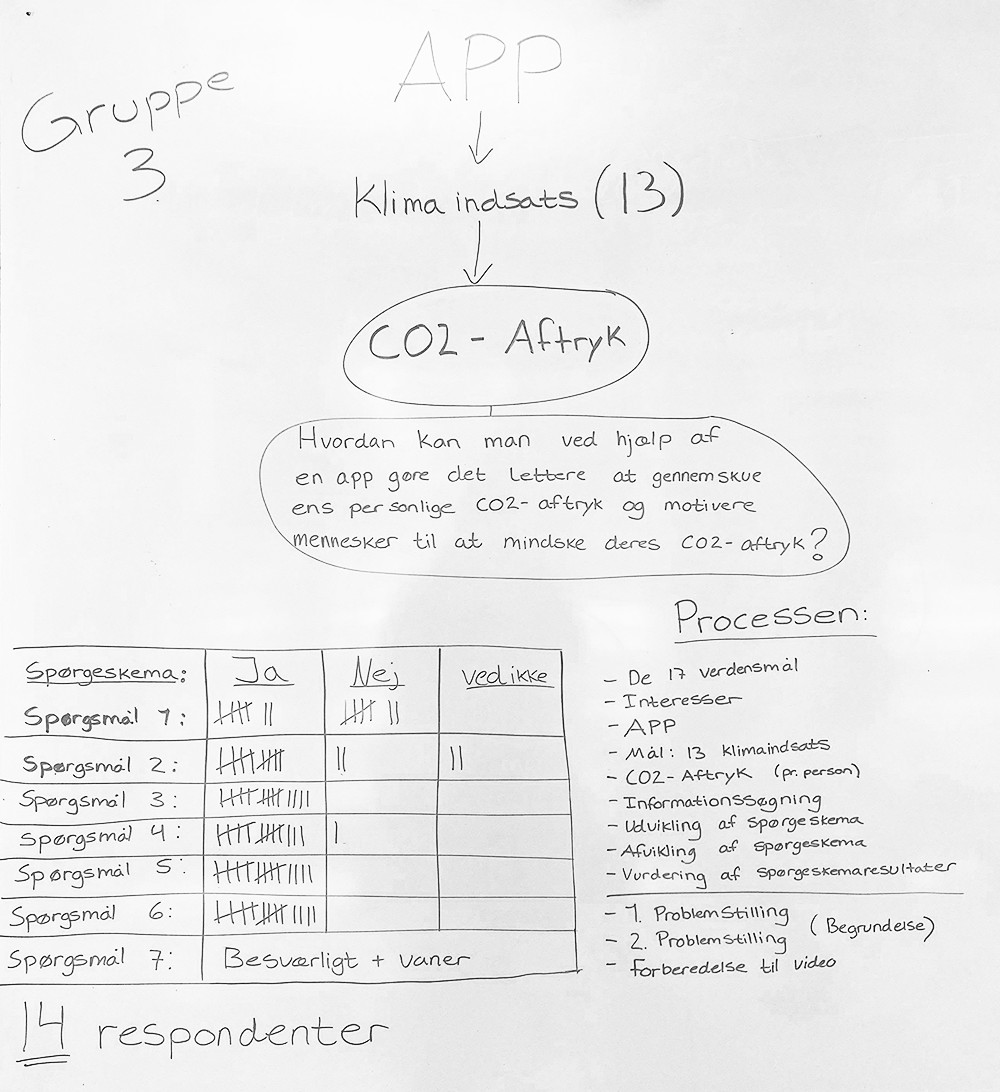 APP
Gruppe
3.
Klimaindsats (13)
CO2 - Aftryk
Hvordan kan man ved hjælp af
en app gøre det lettere at gennemskue
ens personlige CO2-aftryk og motivere
mennesker til at mindske deres CO2-aftryk?
Spørgeskema: Ja Nej ved ikke
Spørgsmål 1: 卌 || 卌 ||
Spørgsmål 2: 卌卌 || ||
Spørgsmål 3: 卌卌 ||||
Spørgsmål 4: 卌卌 ||| |
Spørgsmål 5: 卌卌 ||||
Spørgsmål 6: 卌卌 ||||
Spørgsmål 7: Besværligt + vaner
14 respondenter
Processen:
- De 17 verdensmål
- Interesser
- APP
- Mål: 13 klimaindsats
- CO2-Aftryk (pr. person)
- Informationssøgning
- Udvikling af spørgeskema
- Afvikling af spørgeskema
- Vurdering af spørgeskemaresultater
- 1. Problemstilling
- 2. Problemstilling (Begrundelse)
- Forberedelse til video